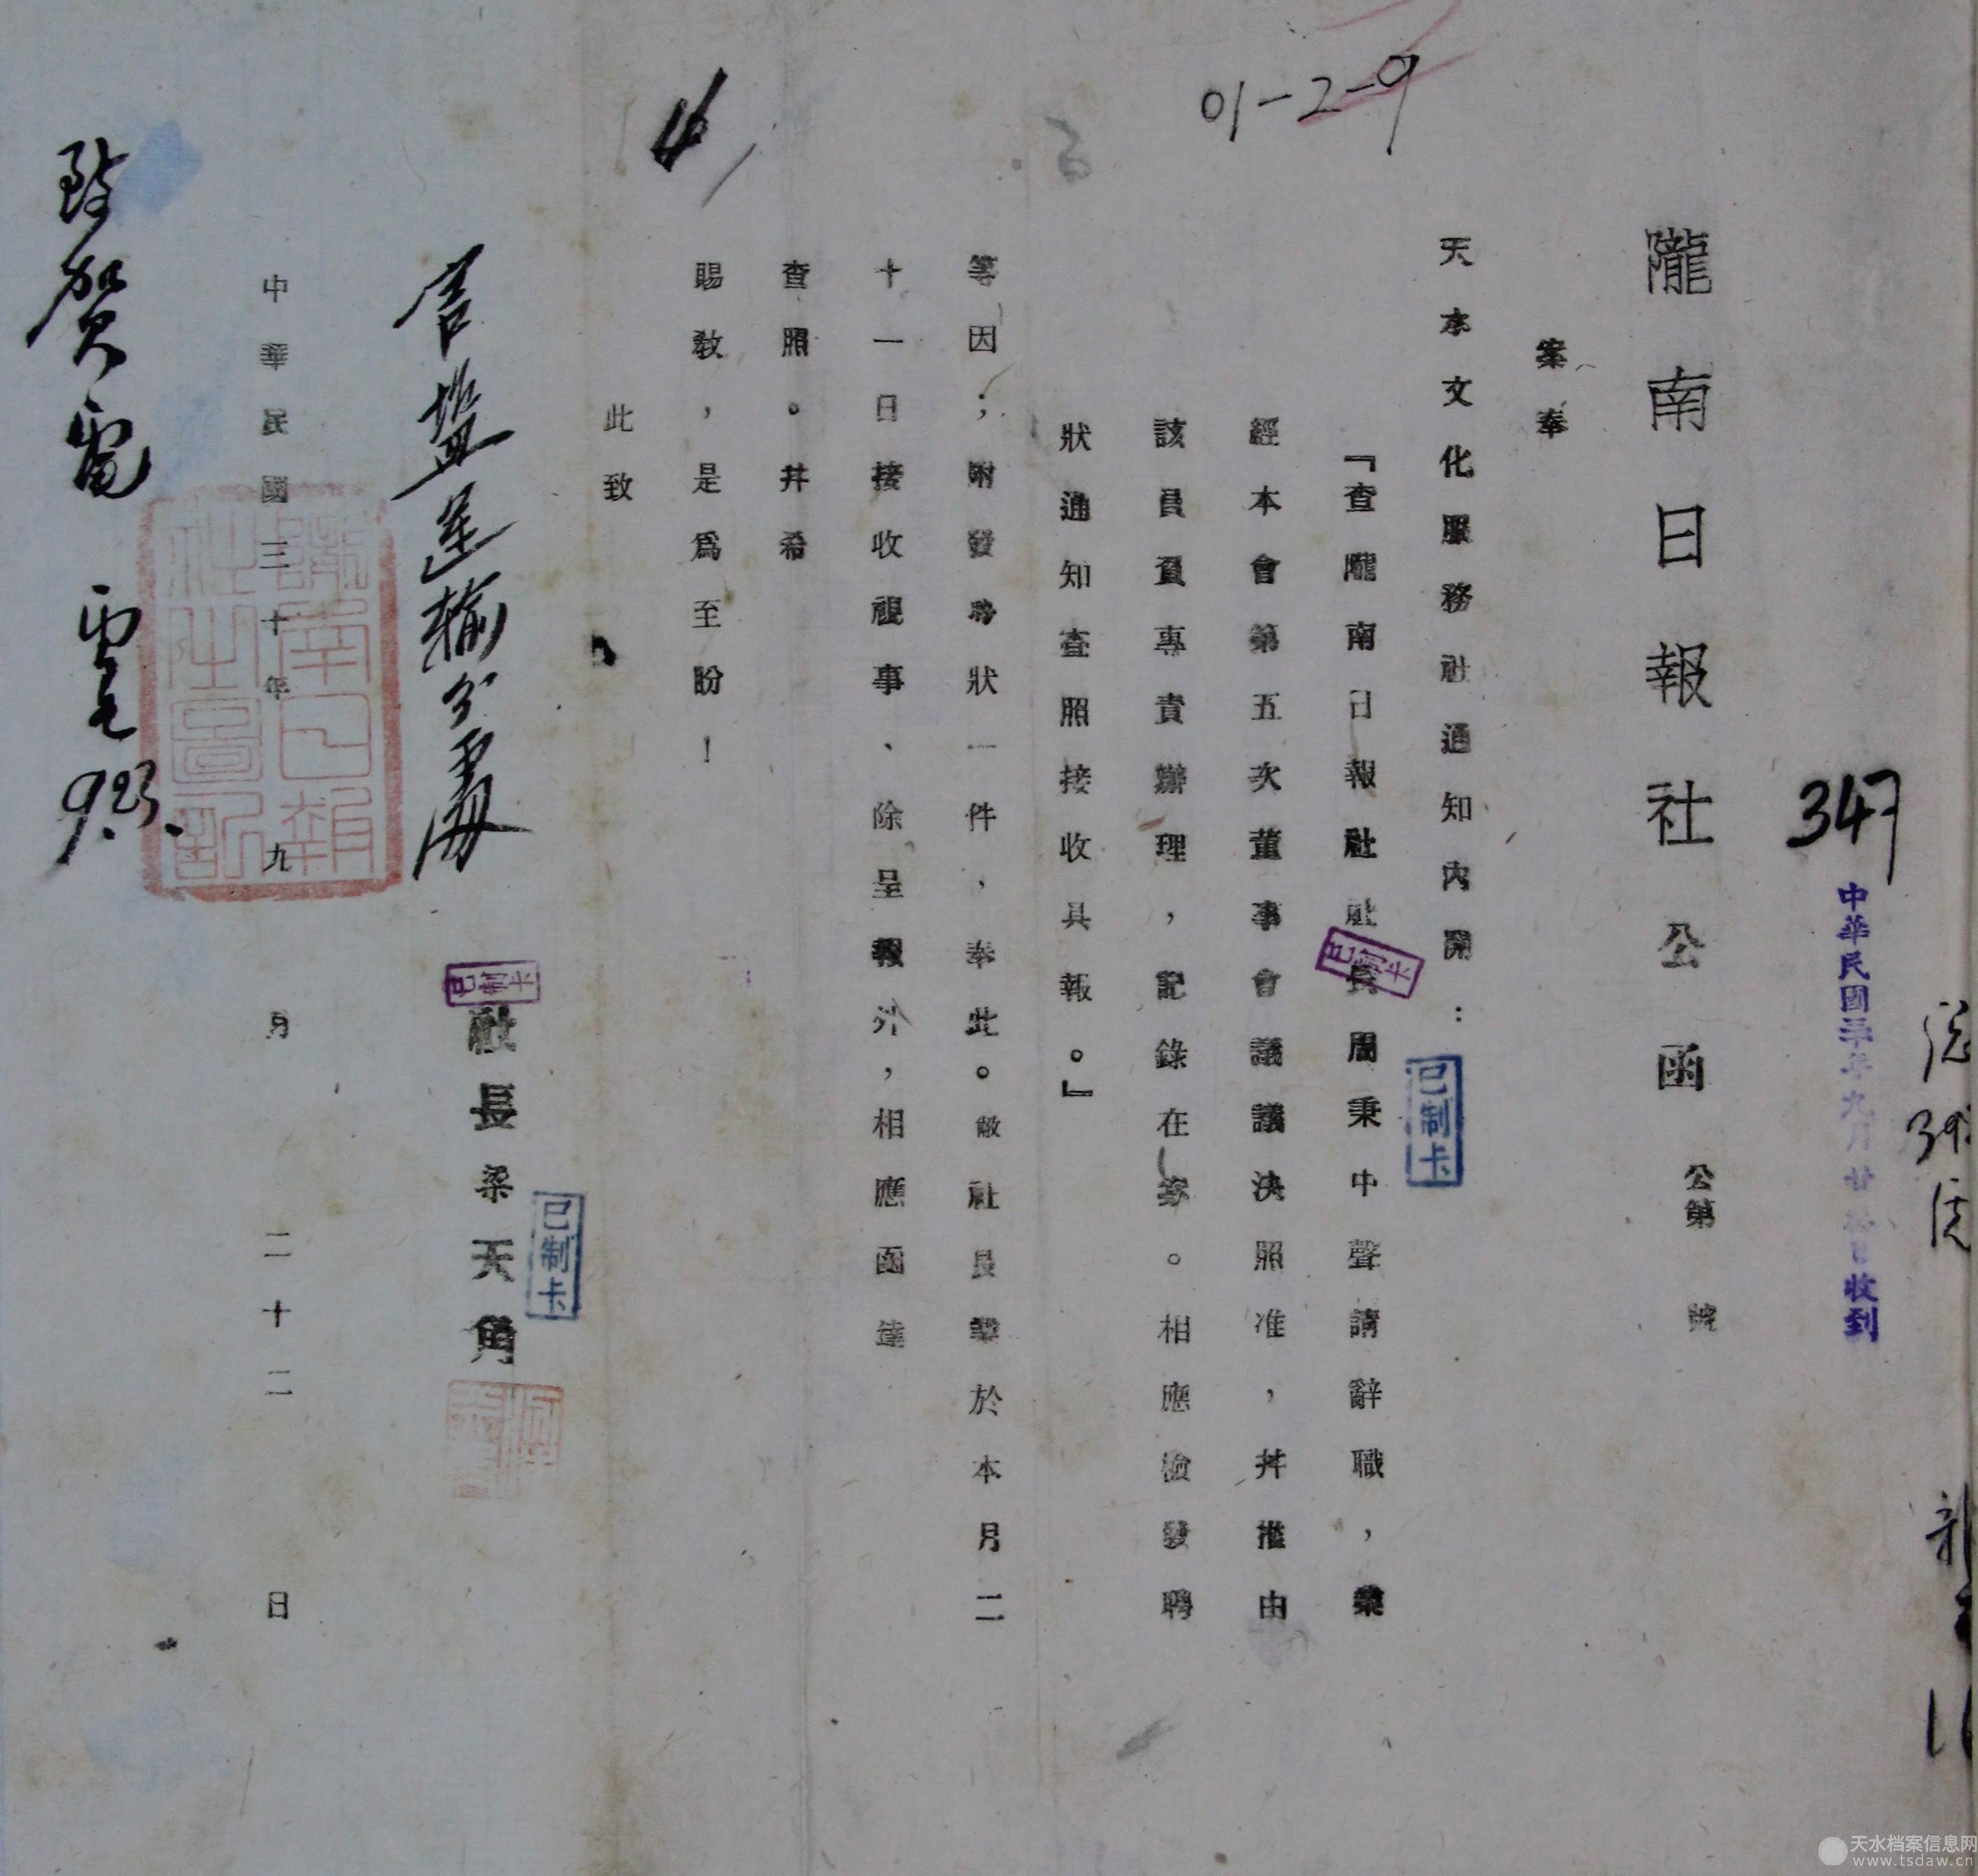 347
中華民國三十年九月廿 日收到
01-2-9
隴南日報社公函 公第 號
案奉
天水文化服務社通知內開：
『查隴南日報社社長周秉中聲請辭職，業
經本會第五次董事會議議決照准，幷推由
該員負專責辦理，記錄在案。相應檢發聘
狀通知查照接收具報。』
等因；附發聘狀一件，奉此。敝社長遵於本月二
十一日接收視事、除呈報外，相應函達
查照。幷希
賜教，是爲至盼！
此致
官鹽運輸分處
社長梁天角
中華民國三十年九月二十二日
致賀電
9.23.
隴南日報社之圖記
已制卡
已制卡
已制卡
已制卡
天水档案信息网
www.tsdaw.cn